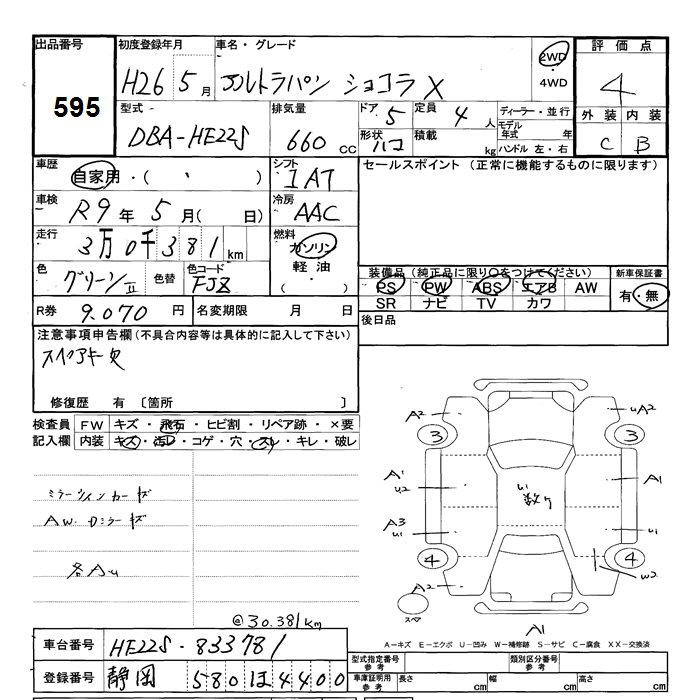 出品番号 初度登録年月 車名・グレード 評価点
595 H26 5月 アルトラパン ショコラ X 2WD・4WD 4
型式 DBA-HE22S 排気量 660cc ドア 5 定員 4人 ディーラー・並行 外装 内装
形状 ハコ 積載 kg モデル年式 年 ハンドル 左・右 C B
車歴 自家用・( ) シフト IAT セールスポイント (正常に機能するものに限ります)
車検 R9年5月( 日) 冷房 AAC
走行 3万0千381km 燃料 ガソリン 軽油・( )
色 グリーンII 色替 色コード FJZ 装備品(純正品に限り○をつけてください) 新車保証書
PS PW ABS エアB AW 有・無
SR ナビ TV カワ
R券 9.070円 名変期限 月 日 後日品
注意事項申告欄(不具合内容等は具体的に記入して下さい)
スペアキー欠
修復歴 有 〔箇所 〕
検査員 FW キズ・飛石・ヒビ割・リペア跡・×要
記入欄 内装 キズ・汚レ・コゲ・穴・スレ・キレ・破レ
A2 uA2
3 3
ミラーウィンカーキズ A1 u2 u1 数ケ A1
AW.Dミラーキズ A3 u1 u1
各Au 4 4
A2 w2
スペア A1
@30.381km
A-キズ E-エクボ U-凹み W-補修跡 S-サビ C-腐食 XX-交換済
車台番号 HE22S-833781 型式指定番号 参考 類別区分番号 参考
登録番号 静岡 580 ほ 4400 車庫証明用 参考 長さ cm 幅 cm 高さ cm